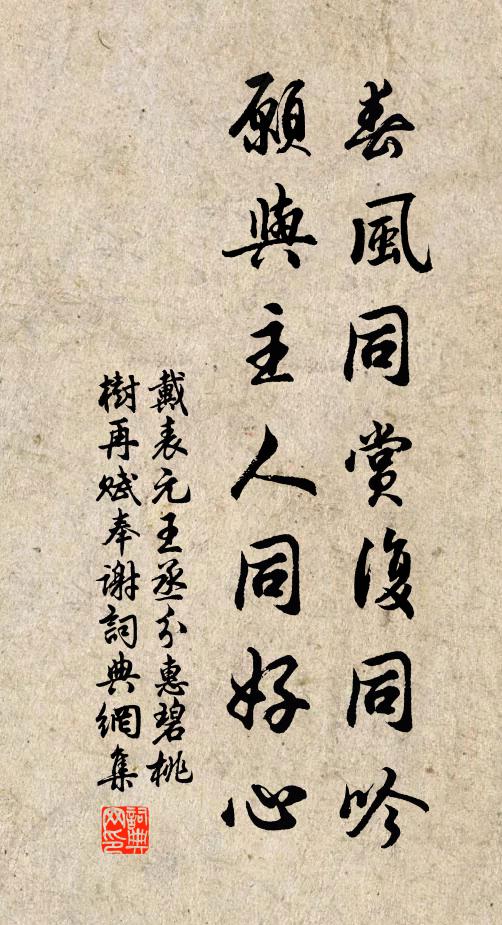 春風同賞復同吟
願與主人同好心
戴表元王丞分惠碧桃
樹再賦奉謝詞典網集
詞典
网印